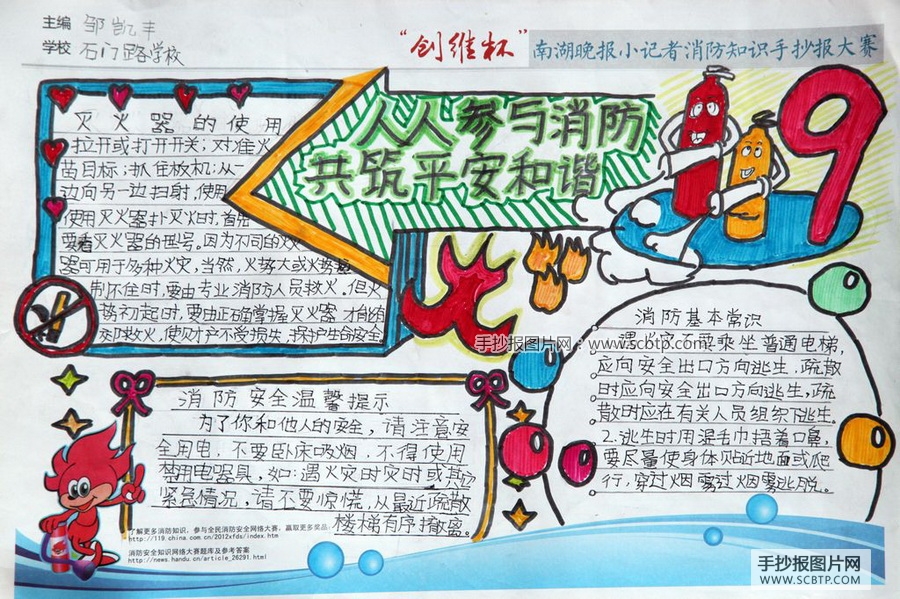 主编 邹凯丰
学校 石门路学校
“创维杯”南湖晚报小记者消防知识手抄报大赛
人人参与消防
共筑平安和谐
119
灭火器的使用
拉开或打开开关;对准火
苗目标;抓住板机;从一
边向另一边扫射,使用
使用灭火器扑灭火时,首先
要看灭火器的型号。因为不同的灭火
器可用于多种火灾,当然,火势大或火势
制不住时,要由专业消防人员救火。但火
势初起时,要由正确掌握灭火器才能
救火,使财产不受损失,保护生命安全
火
手抄报图片网:www.scbtp.com
消防基本常识
遇火灾不要乘坐普通电梯,
应向安全出口方向逃生,疏散
时应向安全出口方向逃生,疏
散时应在有关人员组织下逃生。
2.逃生时用湿毛巾捂着口鼻,
要尽量使身体贴近地面或爬
行,穿过烟雾过烟雾逃脱。
消防安全温馨提示
为了你和他人的安全,请注意安
全用电,不要卧床吸烟,不得使用
禁用电器具,如:遇火灾时灾时或其它
紧急情况,请不要惊慌,从最近疏散
楼梯有序撤离。
了解更多消防知识,参与全民消防安全网络大赛,赢取更多奖品:
http://119.china.com.cn/2012xfds/index.htm
消防安全知识网络大赛题库及参考答案
http://news.handu.cn/article_26291.html
手抄报图片网
WWW.SCBTP.COM